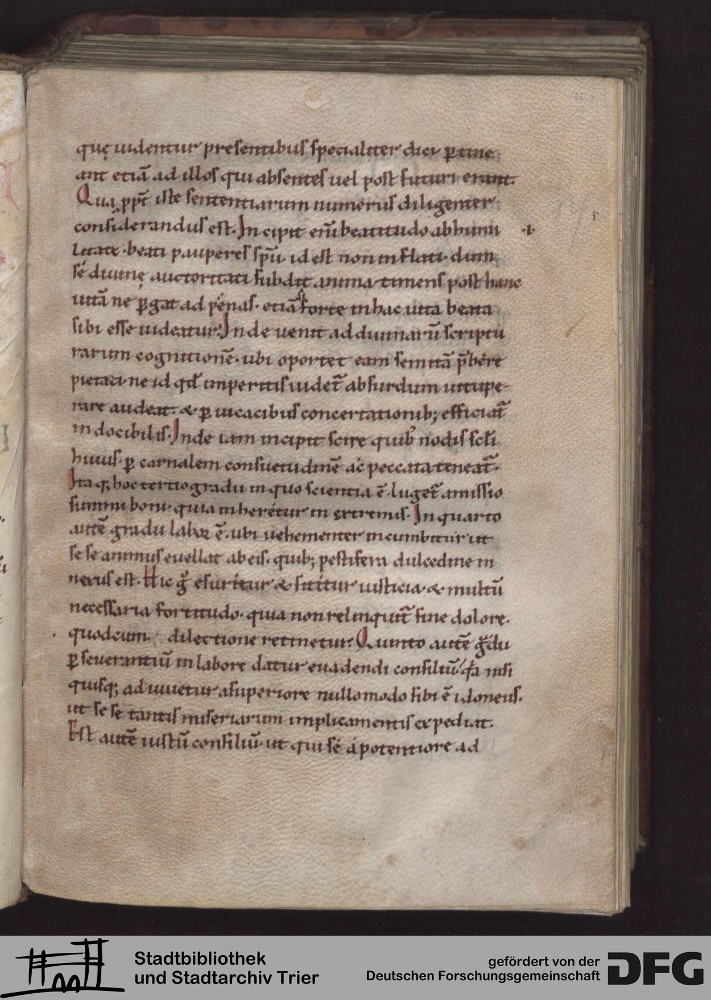 quę uidentur presentibus specialiter dici ꝑtine
ant etiā ad illos qui absentes uel post futuri erant.
Qua ꝓpt iste sententiarum numerus diligenter
considerandus est. Incipit eni beatitudo abhumi
litate. beati pauperes spū id est non inflati. dum
sē diuinę auctoritati subdit anima timens post hanc
uitā ne ꝑgat ad pęnas. etiā si forte in hac uita beata
sibi esse uideatur. Inde uenit ad diuinarū scriptu
rarum cognitionē. ubi oportet eam semitā p̄bere
pietati ne id qđ imperitis uidet absurdum uitupe
rare audeat. & ꝑuicacibus concertationib; efficiat
indocibilis. Inde iam incipit scire quib nodis scli
huius. ꝑ carnalem consuetudinē ac peccata teneat.
Ita q; hoc tertio gradu in quo scientia ē. luget amissio
summi boni. quia inheretur in extremis. In quarto
autē gradu labor ē. ubi uehementer incumbitur ut
se se animus euellat ab eis. quib; pestifera dulcedine in
nexus est. Hic g esuritur & sititur iusticia. & multū
necessaria fortitudo. quia non relinquit sine dolore.
quod cum dilectione retinetur. Quinto autē gdu
ꝑseuerantiū in labore datur euadendi consiliū. qa nisi
quisq; adiuuetur a superiore nullomodo sibi ē idoneus.
ut se se tantis miseriarum implicamentis expediat.
Est autē iustū consiliū. ut qui sē a potentiore ad
·I·
Stadtbibliothek
und Stadtarchiv Trier
gefördert von der
Deutschen Forschungsgemeinschaft
DFG